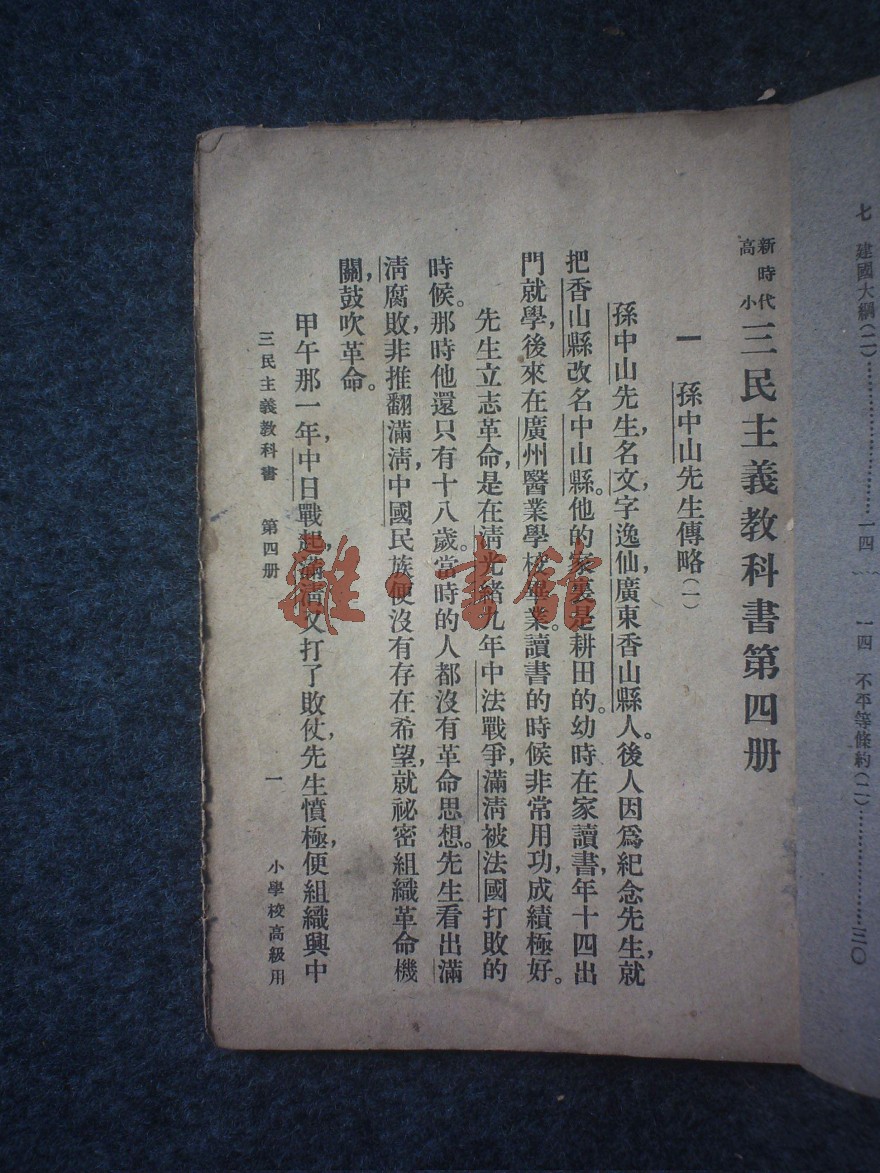 七　建國大綱(二)……………………一四
一四　不平等條約(二)……………………三〇
新時代
高小
三民主義教科書第四册
一　孫中山先生傳略(一)
孫中山先生，名文，字逸仙，廣東香山縣人。後人因爲紀念先生，就
把香山縣改名中山縣。他的家裏是耕田的。幼時在家讀書，年十四出
門就學，後來在廣州醫業學校畢業。讀書的時候非常用功，成績極好。
先生立志革命，是在清光緒九年中法戰爭，滿清被法國打敗的
時候。那時他還只有十八歲。當時的人都沒有革命思想。先生看出滿
清腐敗，非推翻滿清，中國民族便沒有存在希望，就祕密組織革命機
關，鼓吹革命。
甲午那一年，中日戰起，滿清又打了敗仗，先生憤極，便組織興中
三民主義教科書　第四册　一　小學校高級用
雜·書館